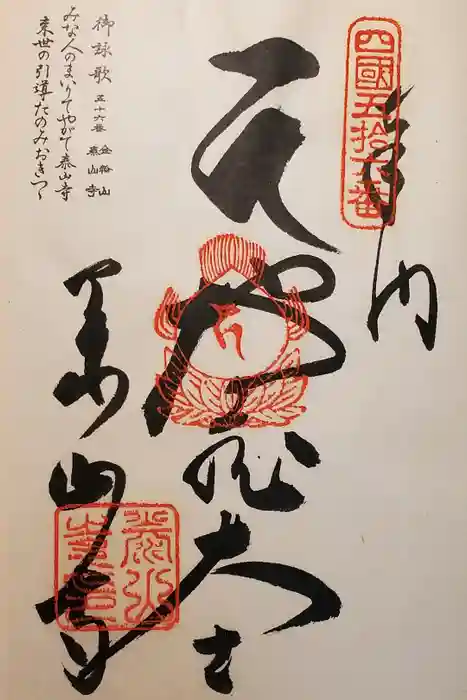 四國五拾六番
奉納
地蔵大士
泰山寺
泰山寺
御詠歌 五十六番 金輪山 泰山寺
みな人のまいりてやがて泰山寺
来世の引導たのみおきつゝ